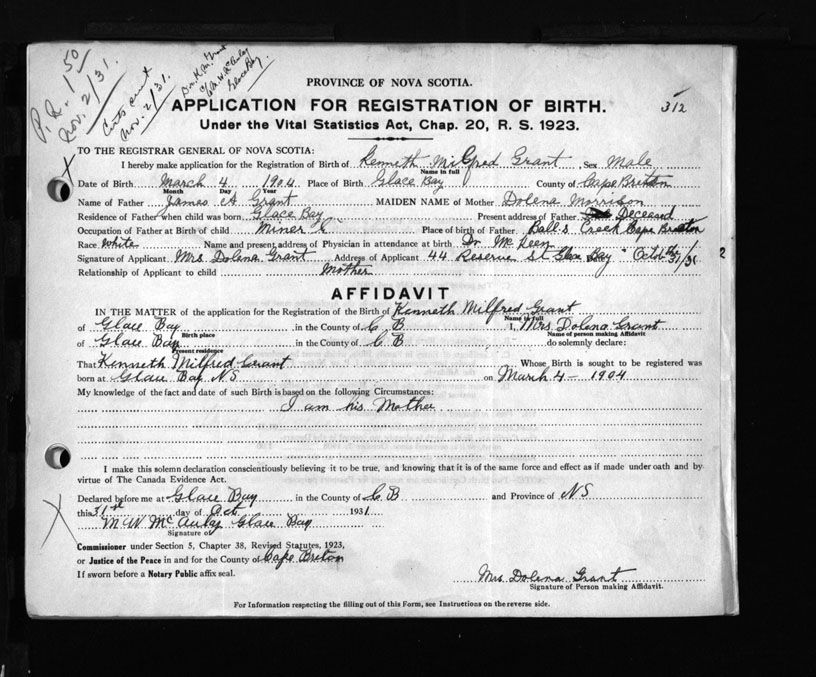 P.R. 1 50
Nov. 2/31.
Certs sent
Nov. 2/31.
Dr. K. M. Grant
c/o M. W. McAulay
Glace Bay.
PROVINCE OF NOVA SCOTIA.
APPLICATION FOR REGISTRATION OF BIRTH.
312
Under the Vital Statistics Act, Chap. 20, R. S. 1923.
TO THE REGISTRAR GENERAL OF NOVA SCOTIA:
I hereby make application for the Registration of Birth of Kenneth Milfred Grant Sex Male
Name in full
Date of Birth March 4 1904 Place of Birth Glace Bay County of Cape Breton
Month Day Year
Name of Father James A Grant MAIDEN NAME of Mother Dolena Morrison
Residence of Father when child was born Glace Bay Present address of Father Deceased
Occupation of Father at Birth of child Miner Place of birth of Father Ball's Creek Cape Breton
Race White Name and present address of Physician in attendance at birth Dr McKeen
Signature of Applicant Mrs Dolena Grant Address of Applicant 44 Reserve St Glace Bay Octob the 31/31
2
Relationship of Applicant to child Mother
AFFIDAVIT
IN THE MATTER of the application for the Registration of the Birth of Kenneth Milfred Grant
Name in full
of Glace Bay in the County of C B I, Mrs Dolena Grant
Birth place Name of person making Affidavit
of Glace Bay in the County of C B do solemnly declare:
Present residence
That Kenneth Milfred Grant Whose Birth is sought to be registered was
born at Glace Bay N S on March 4 - 1904
My knowledge of the fact and date of such Birth is based on the following Circumstances:
I am his Mother
I make this solemn declaration conscientiously believing it to be true, and knowing that it is of the same force and effect as if made under oath and by
virtue of The Canada Evidence Act.
Declared before me at Glace Bay in the County of C B and Province of N S
this 31st day of Oct 1931
M W McAulay Glace Bay
Signature of
Commissioner under Section 5, Chapter 38, Revised Statutes, 1923,
or Justice of the Peace in and for the County of Cape Breton
If sworn before a Notary Public affix seal.
Mrs Dolena Grant
Signature of Person making Affidavit.
For Information respecting the filling out of this Form, see Instructions on the reverse side.